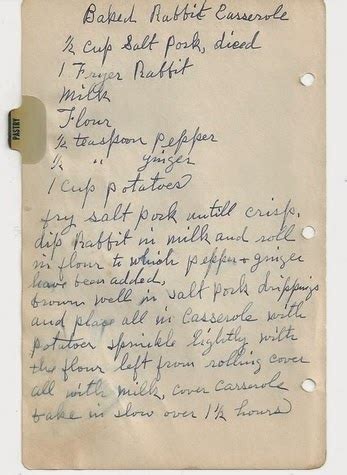 Baked Rabbit Casserole
½ cup Salt Pork, diced
1 Fryer Rabbit
Milk
Flour
½ teaspoon pepper
½ " ginger
1 cup potatoes
PASTRY
fry salt pork untill crisp,
dip Rabbit in milk and roll
in flour to which pepper + ginger
have been added,
brown well in salt pork drippings
and place all in Casserole with
potatoes sprinkle lightly with
the flour left from rolling cover
all with milk, cover casserole
bake in slow over 1½ hours